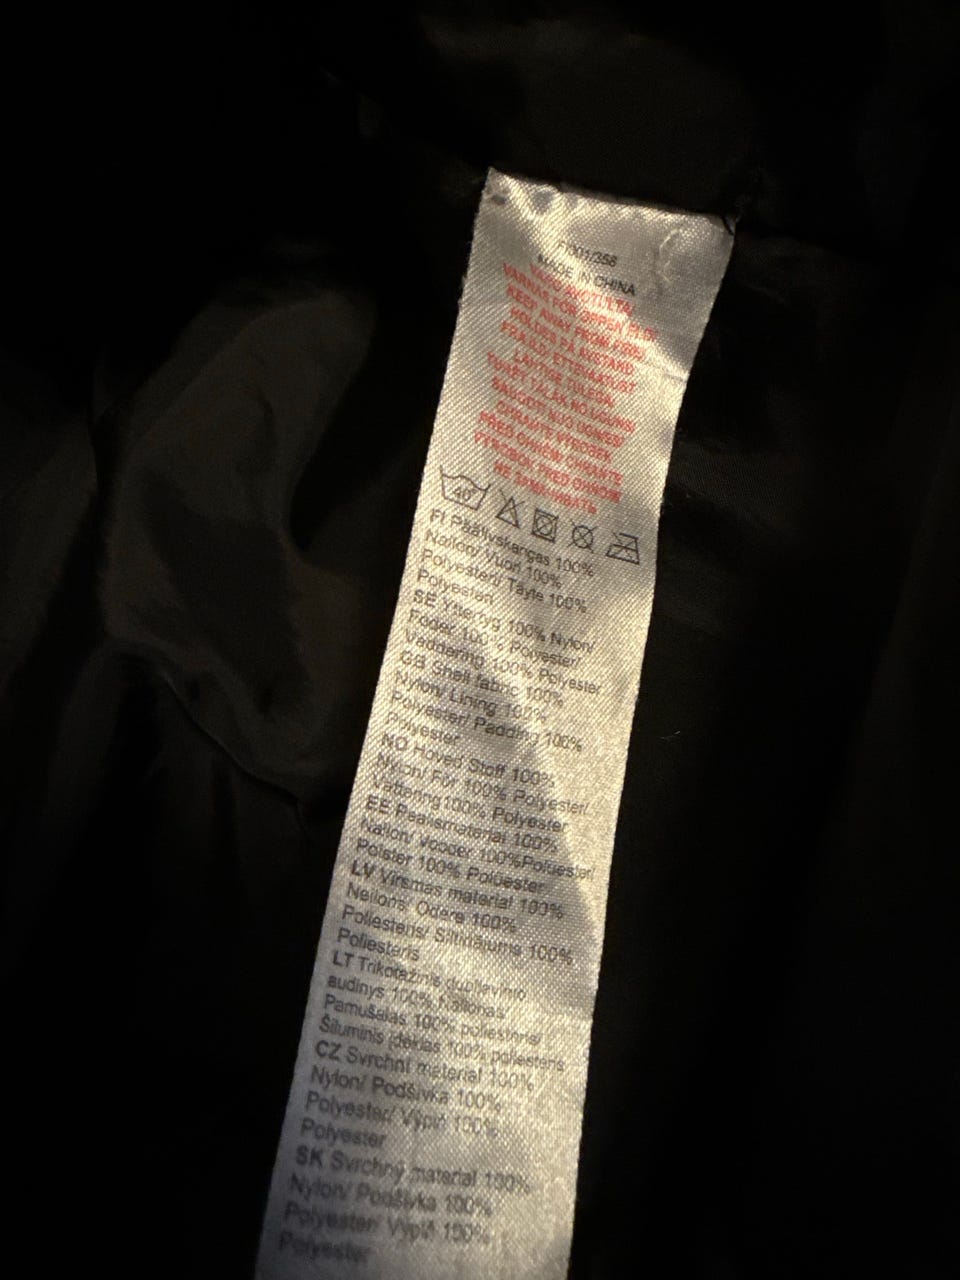 MADE IN CHINA
VARO AVOTULTA!
VARNAS FÖR ÖPPEN ELD!
KEEP AWAY FROM FIRE!
HOLDES PÅ AVSTAND
FRA ILD ET TEMPERATURT
TURĒT TĀLĀK NO UGUNS!
SAUGOTI NUO UGNIES!
CHRAŇTE VÝROBEK
PŘED OHNĚM! CHRÁŇTE
VÝROBOK PRED OHŇOM
40
FI Päällyskangas 100%
Nailon/ Vuori 100%
Polyesteri/ Täyte 100%
Polyesteri
SE Yttertyg 100% Nylon/
Foder 100% Polyester/
Vaddering 100% Polyester
GB Shell fabric 100%
Nylon/ Lining 100%
Polyester/ Padding 100%
Polyester
NO Hoved Stoff 100%
Nylon/ Fôr 100% Polyester/
Vattering100% Polyester
EE Pealismaterial 100%
Nailon/ Vooder 100%Polüester/
Polster 100% Polüester
LV Virsmas materiāl 100%
Neilons/ Odere 100%
Poliesteris/ Siltinājums 100%
Poliesteris
LT Trikotažinis dupliavinio
audinys 100% Nailonas/
Pamušalas 100% poliesteris/
Šiluminis įdėklas 100% poliesteris
CZ Svrchní materiál 100%
Nylon/ Podšívka 100%
Polyester/ Výplň 100%
Polyester
SK Svrchný materiál 100%
Nylon/ Podšívka 100%
Polyester/ Výplň 100%
Polyester